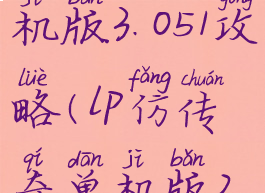 jī bǎn gōng
机版3.051攻
lüè fǎng chuán
略(lp仿传
qí dān jī bǎn
奇单机版)